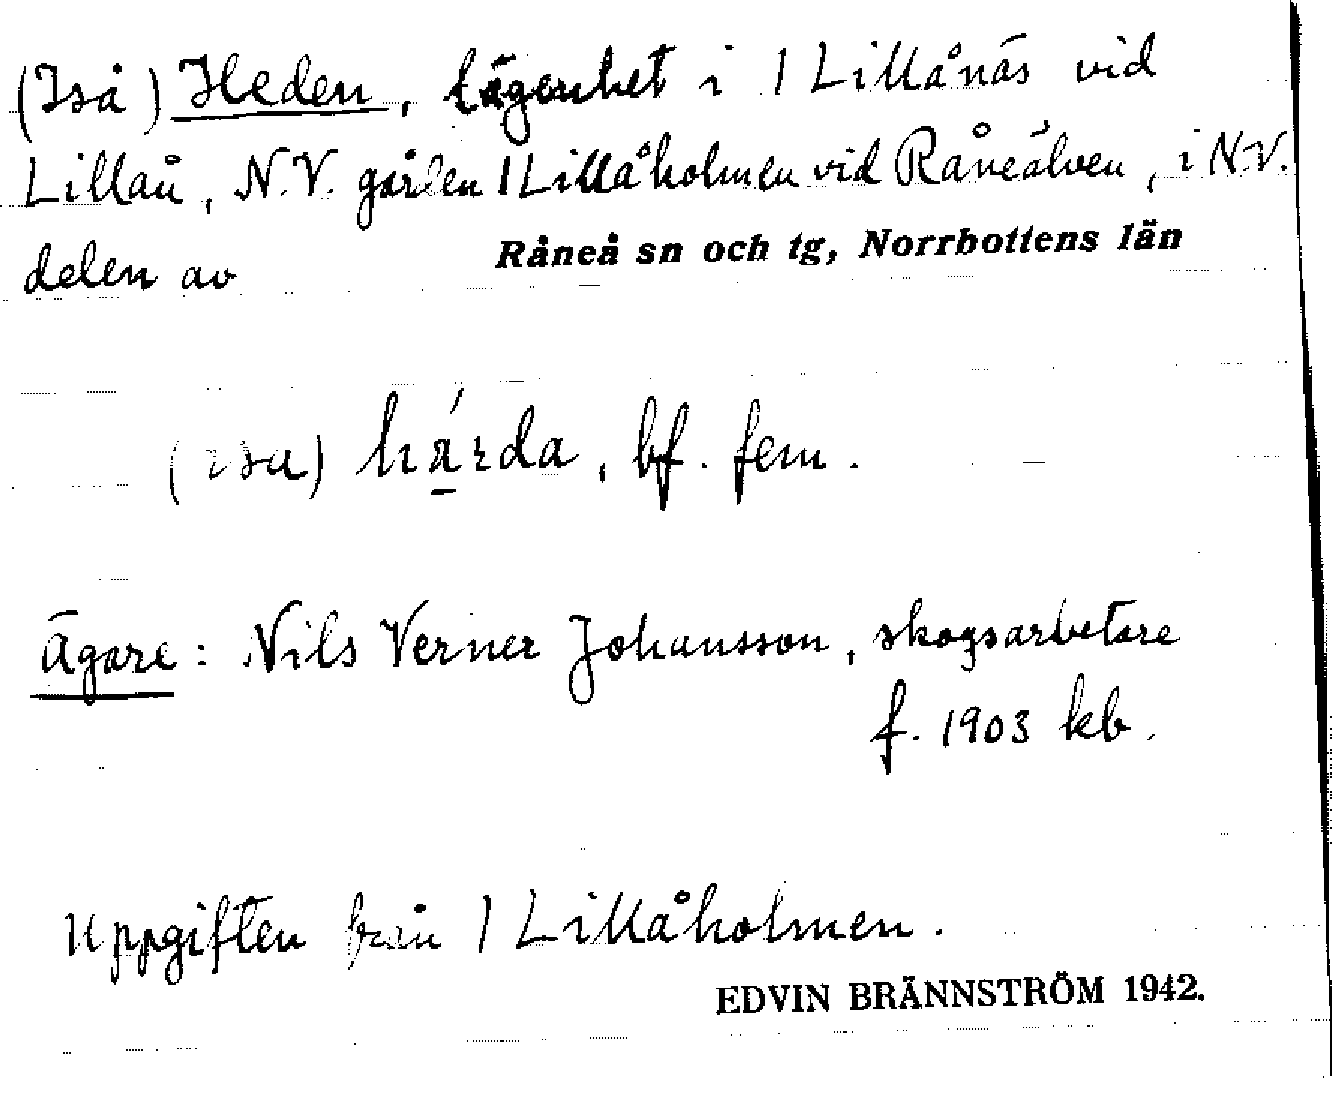 (Iså) Heden, lägenhet i 1 Lillånäs vid
Lillån, N.V. gården 1 Lillåholmen vid Råneälven, i N.V.
delen av Råneå sn och tg, Norrbottens län
(isa) hárda, bf. fem.
Ägare: Nils Verner Johansson, skogsarbetare
f. 1903 kb.
Uppgiften från 1 Lillåholmen.
EDVIN BRÄNNSTRÖM 1942.